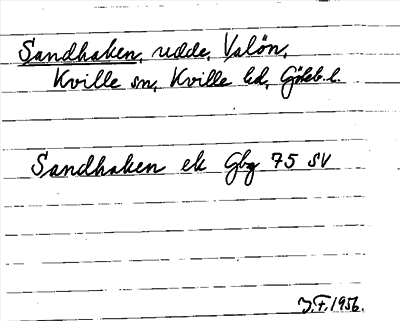 Sandhaken, udde, Valön,
Kville sn, Kville hd, Göteb. l.
Sandhaken ek Gbg 75 SV
J.F. 1956.